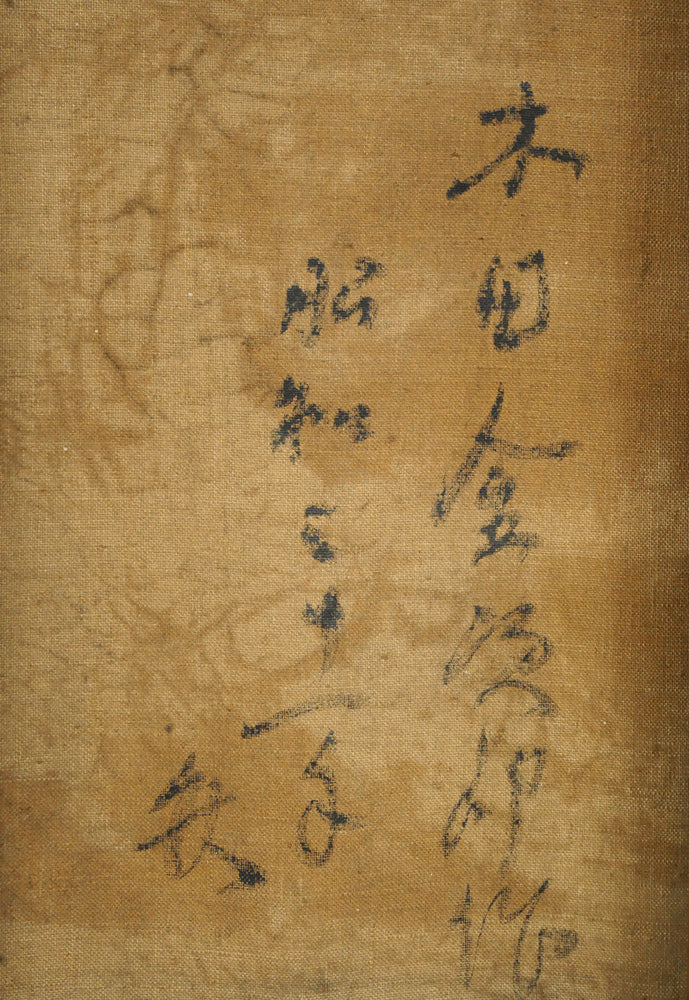 木田金次郎作
昭和三十一年